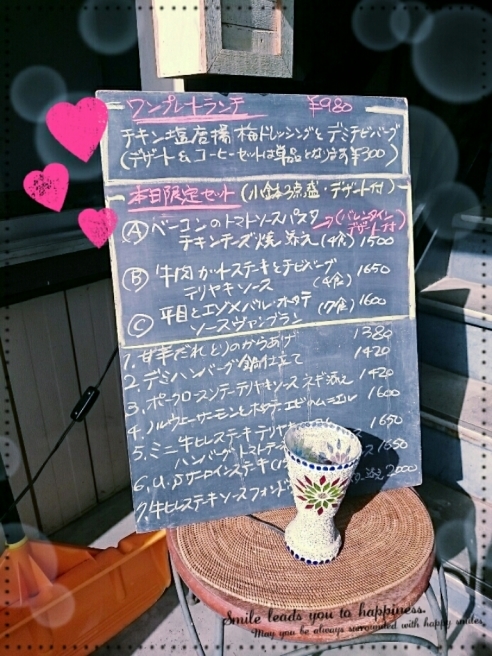 ワンプレートランチ ¥980
チキン塩唐揚梅ドレッシングとデミチビバーグ
(デザート&コーヒーセットは単品となります¥300)
本日限定セット (小鉢3点盛・デザート付)
Ⓐ ベーコンのトマトソースパスタ →(バレンタイン
チキンチーズ焼添え (4食) 1500 デザート付)
Ⓑ 牛肉カットステーキとチビバーグ 1650
テリヤキソース (4食)
Ⓒ 平目とエゾメバル・ホタテ 1600
ソースヴァンブラン (7食)
1. 甘辛だれとりのからあげ 1380
2. デミハンバーグ鍋仕立て 1420
3. ポークロースソテーテリヤキソースネギ添え 1420
4. ノルウェーサーモンとホタテエビのムニエル 1600
5. ミニ牛ヒレステーキテリヤキ 1650
ハンバーグトマト ス 1650
6. U.Sサーロインステーキ
7. 牛ヒレステーキソースフォンド 添え 2000
Smile leads you to happiness.
May you be always surrounded with happy smiles.